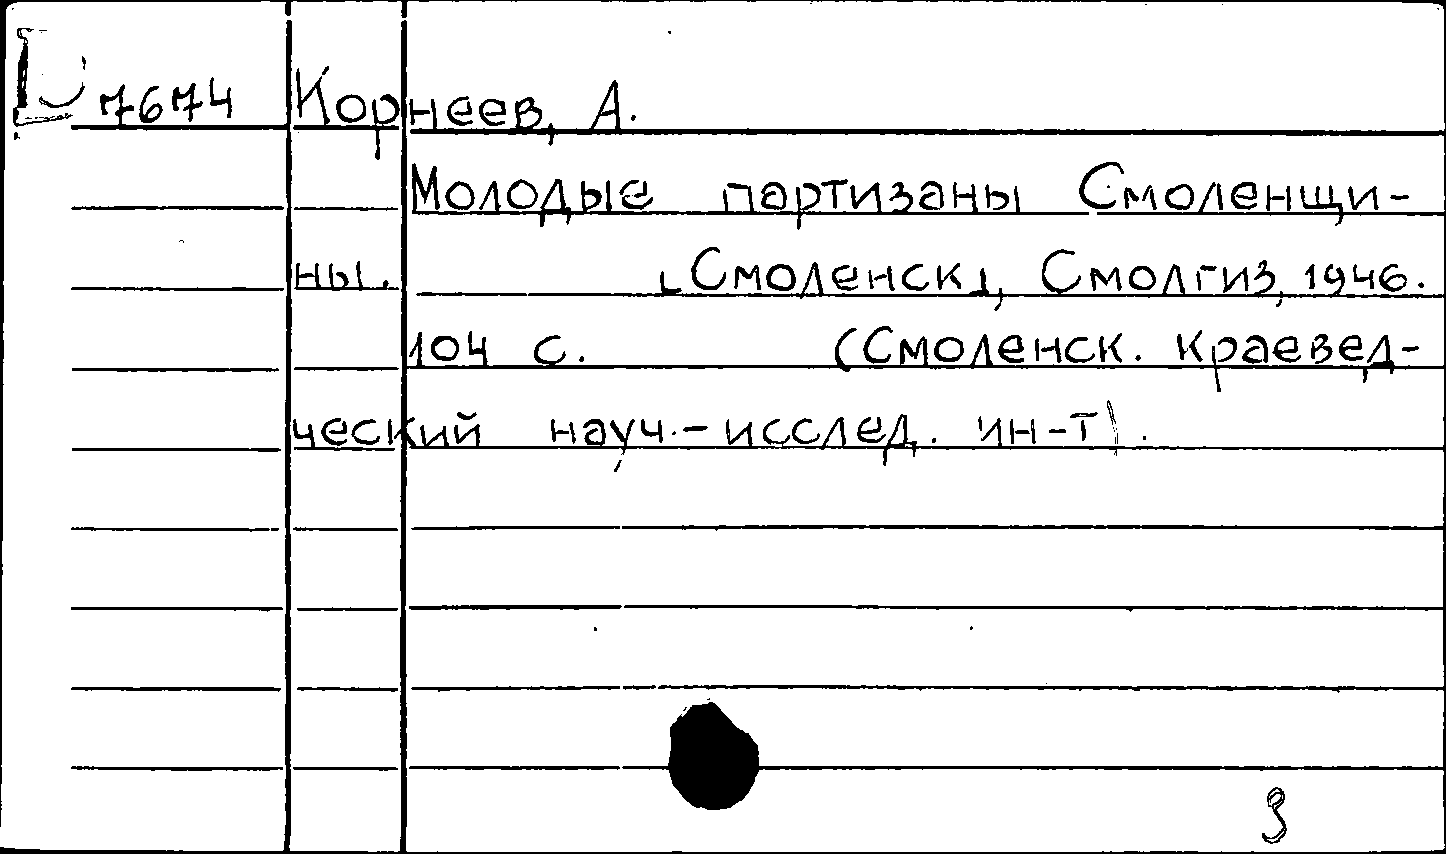 7674 Корнеев, А.
Молодые партизаны Смоленщи-
ны. [Смоленск], Смолгиз, 1946.
104 с. (Смоленск. краевед-
ческий науч.-исслед. ин-т).